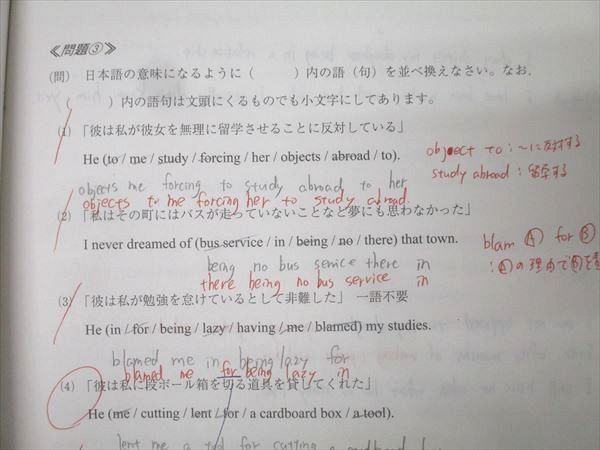 ≪問題③≫
(問) 日本語の意味になるように ( ) 内の語 (句) を並べ換えなさい。なお、
( ) 内の語句は文頭にくるものでも小文字にしてあります。
(1) 「彼は私が彼女を無理に留学させることに反対している」
He (to / me / study / forcing / her / objects / abroad / to).
object to : ～に反対する
study abroad : 留学する
objects me forcing to study abroad to her
objects to me forcing her to study abroad.
(2) 「私はその町にはバスが走っていないことなど夢にも思わなかった」
I never dreamed of (bus service / in / being / no / there) that town.
blam Ⓐ for Ⓑ
: Ⓐの理由で Ⓑを
being no bus service there in
there being no bus service in
(3) 「彼は私が勉強を怠けているとして非難した」 一語不要
He (in / for / being / lazy / having / me / blamed) my studies.
blamed me in being lazy for
blamed me for being lazy in
(4) 「彼は私に段ボール箱を切る道具を貸してくれた」
He (me / cutting / lent / for / a cardboard box / a tool).
lent me a tool for cutting a cardboard